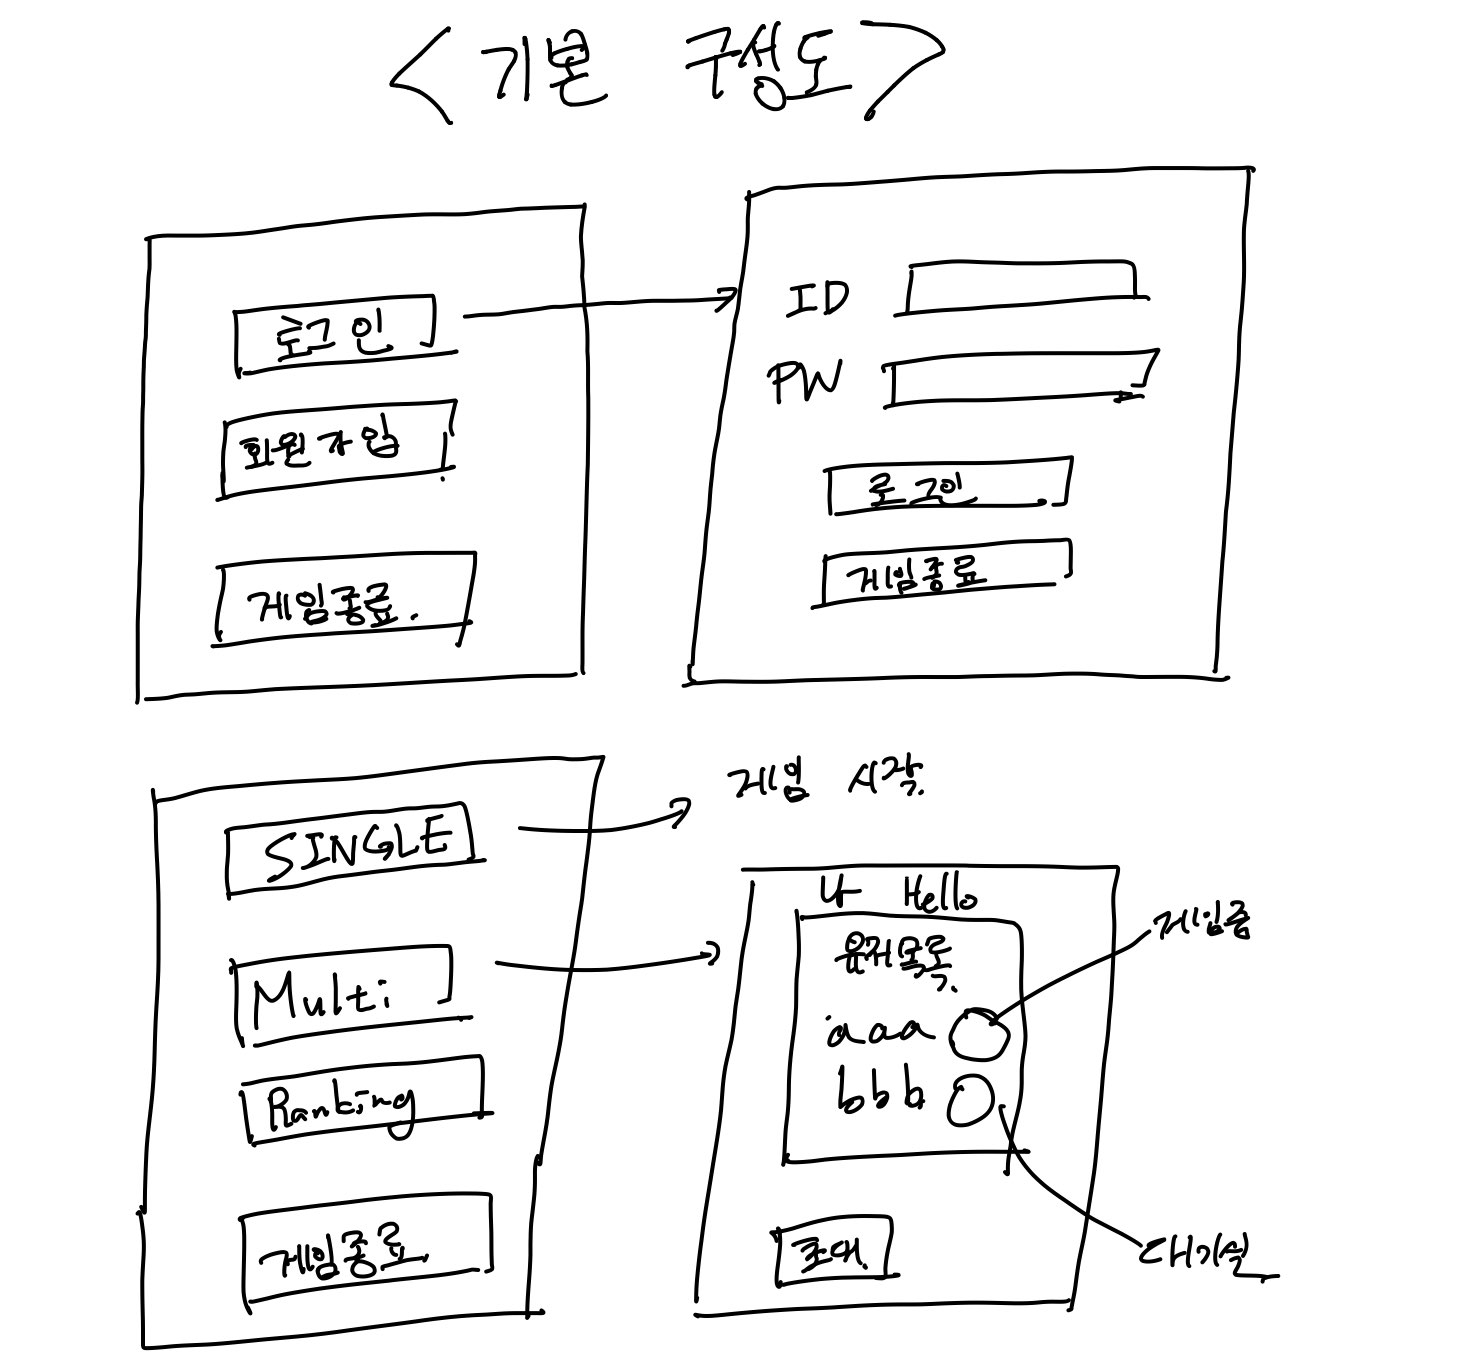 <기본 구성도>
로그인
회원가입
게임종료.
ID
PW
로그인
게임종료
SINGLE
Multi
Ranking
게임종료
게임 시작.
Hello
유저목록.
aaa
bbb
초대.
게임중
대기실